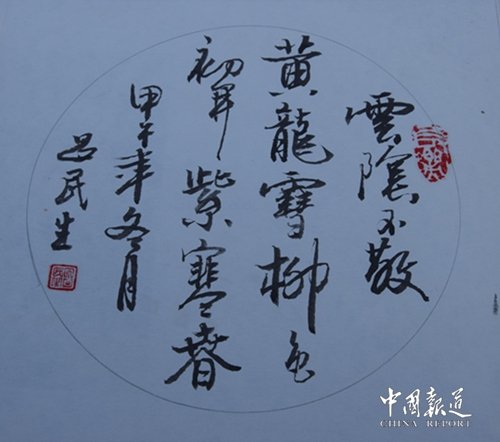 雲陰不散
黄龍雪柳色
初開紫塞春
甲午年冬月
呂民生
中國報道
CHINA REPORT